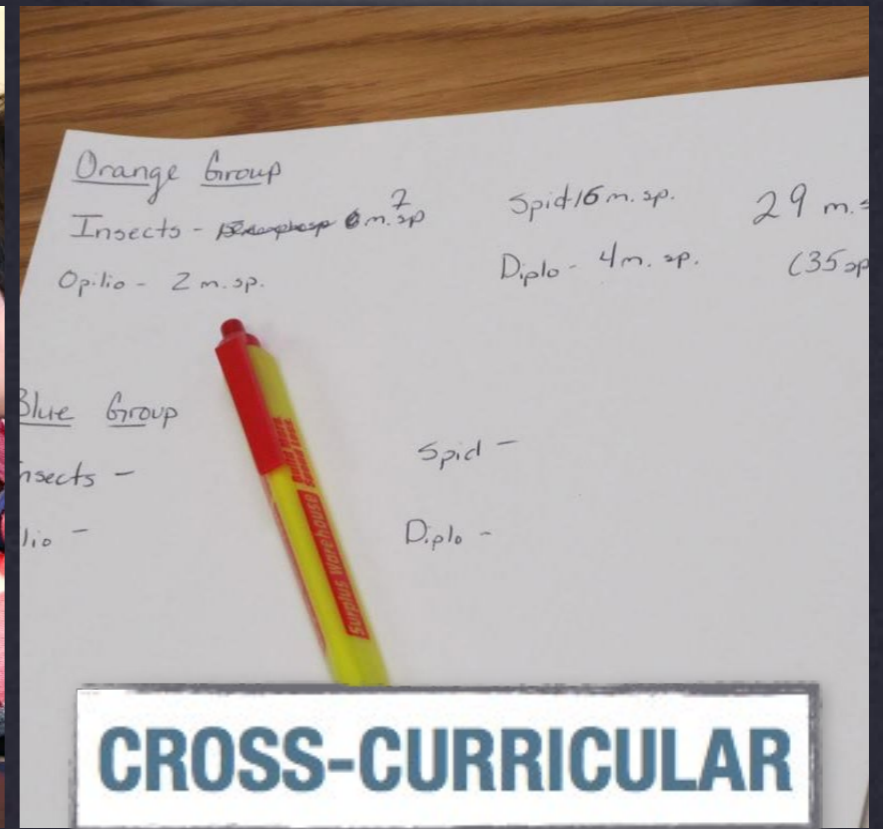 Orange Group
Insects - 6 m. sp 7
Opilio - 2 m. sp.
Spid - 16 m. sp.
Diplo - 4 m. sp.
29 m. s
(35 sp
Blue Group
nsects -
lio -
Spid -
Diplo -
Surplus Warehouse
CROSS-CURRICULAR